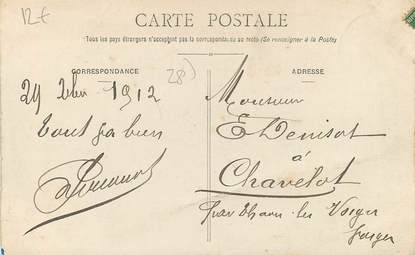 12€
CARTE POSTALE
Tous les pays étrangers n'acceptent pas la correspondance au recto (Se renseigner à la Poste)
CORRESPONDANCE
ADRESSE
28)
29 1912
tout va bien
Monsieur
E Denisot
à
Chavelot
par Thaon les Vosges
Vosges